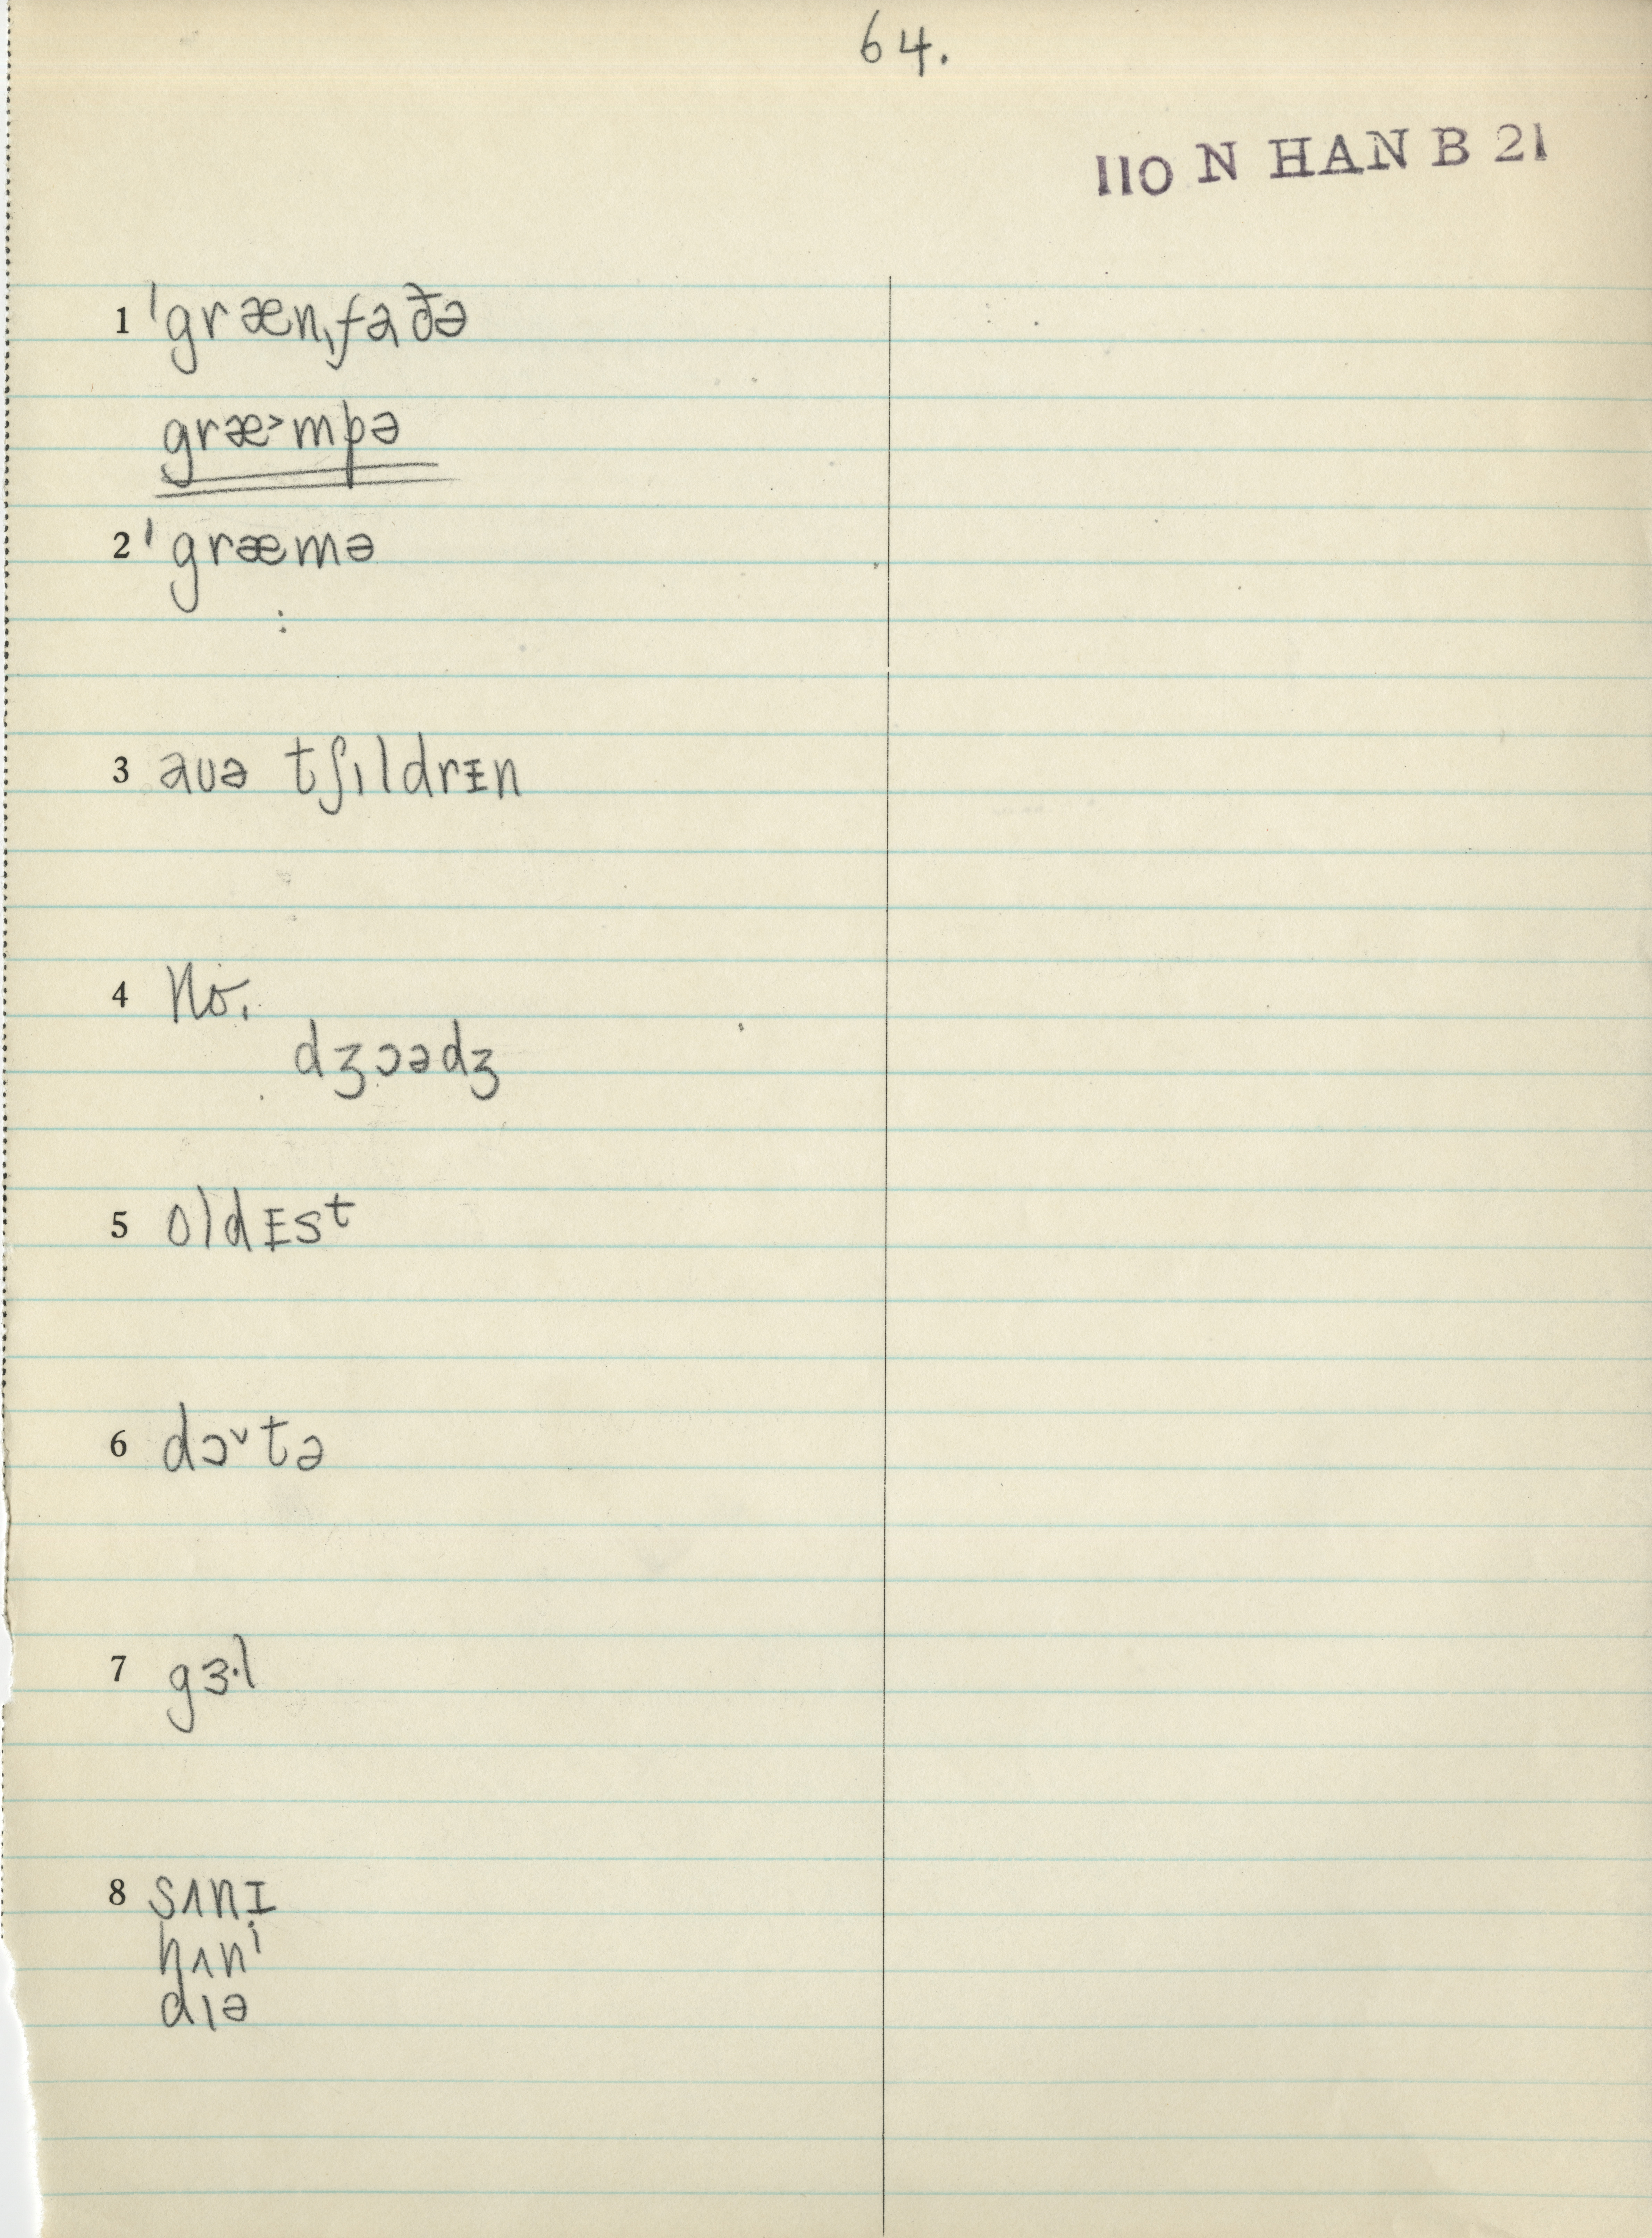 64.
110 N HAN B 21
1 ˈgrænˌfaðə
græ˃mpə
2 ˈgræmə
3 aʊə tʃɪldrᵻn
4 No.
dʒɔədʒ
5 oldᵻst
6 dɔ˅tə
7 gɜ·l
8 sʌnɪ
hʌni
dɪə